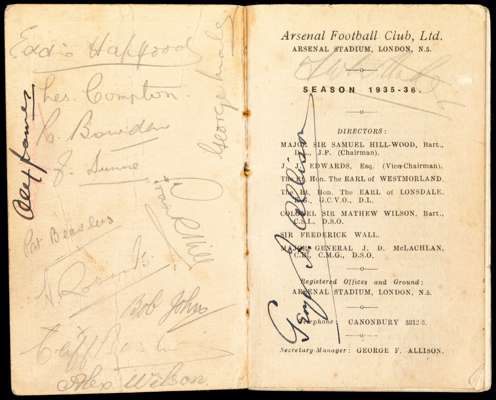 Eddie Hapgood
Les. Compton.
Alex James
George Male
J. Dunne
Frank Hill
Pat Beasley
Bob John
Alex Wilson
Arsenal Football Club, Ltd.
ARSENAL STADIUM, LONDON, N.5.
SEASON 1935-36.
DIRECTORS:
MAJOR SIR SAMUEL HILL-WOOD, Bart.,
D.L., J.P. (Chairman).
J. EDWARDS, Esq. (Vice-Chairman).
The Rt. Hon. The EARL of WESTMORLAND.
The Rt. Hon. The EARL of LONSDALE,
K.G., G.C.V.O., D.L.
COLONEL SIR MATHEW WILSON, Bart.,
C.S.I., D.S.O.
SIR FREDERICK WALL.
MAJOR GENERAL J. D. McLACHLAN,
C.B., C.M.G., D.S.O.
Registered Offices and Ground:
ARSENAL STADIUM, LONDON, N.5.
Telephone: CANONBURY
Secretary-Manager: GEORGE F. ALLISON.
George F. Allison